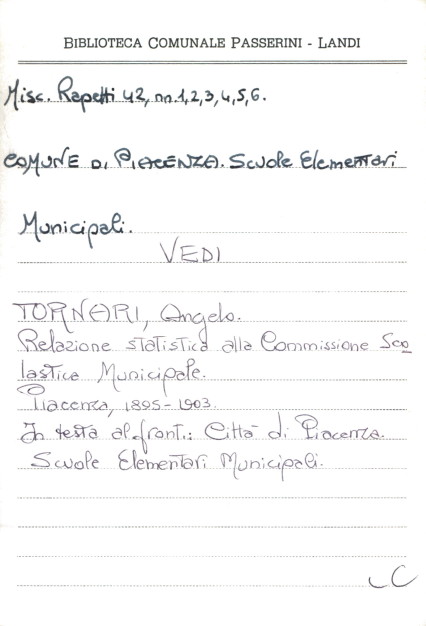 BIBLIOTECA COMUNALE PASSERINI - LANDI
Misc. Rapetti 42, nn. 1, 2, 3, 4, 5, 6.
COMUNE DI PIACENZA. Scuole Elementari
Municipali.
VEDI
TORNARI, Angelo.
Relazione statistica alla Commissione Sco
lastica Municipale.
Piacenza, 1895-1903.
In testa al front.: Città di Piacenza.
Scuole Elementari Municipali.